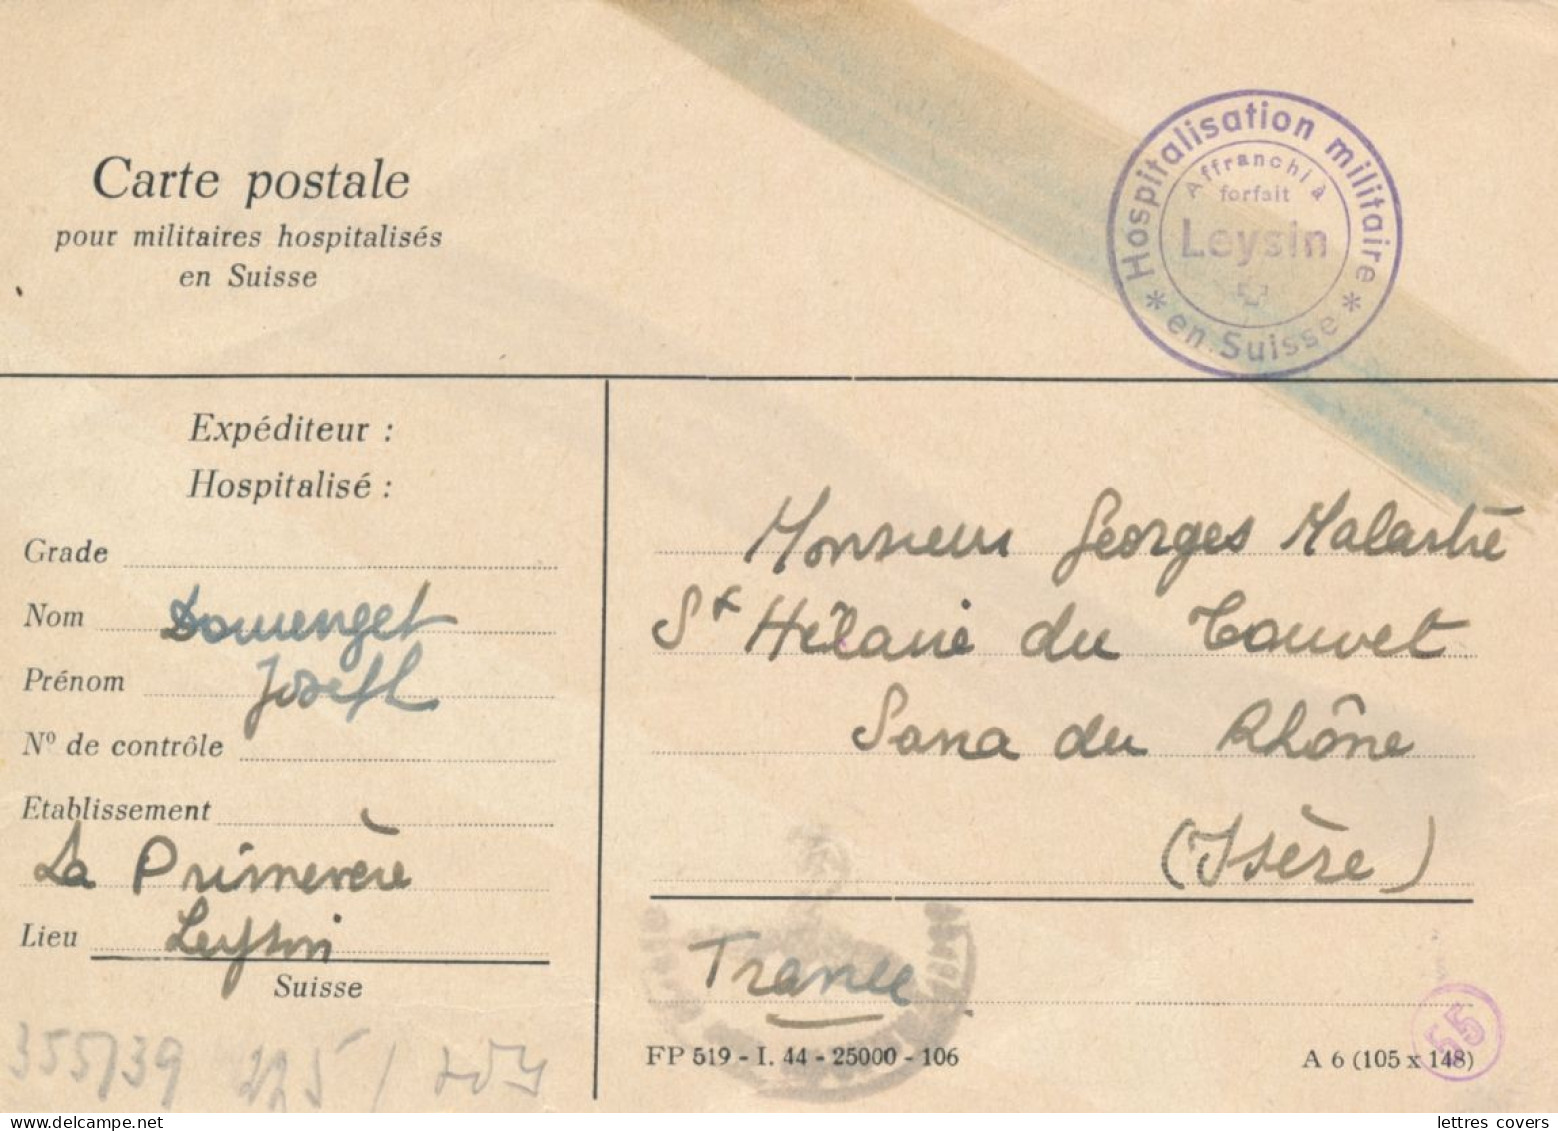 Carte postale
pour militaires hospitalisés
en Suisse
Hospitalisation militaire
* en Suisse *
Affranchi à
forfait
Leysin
Expéditeur :
Hospitalisé :
Grade
Nom Domenget
Prénom Joseph
Nº de contrôle
Etablissement
La Primevère
Lieu Leysin
Suisse
Monsieur Georges Malartré
St Hilaire du Touvet
Sana du Rhône
(Isère)
France
FP 519 - I. 44 - 25000 - 106
A 6 (105 x 148)
55
355739 225 /
lettres covers